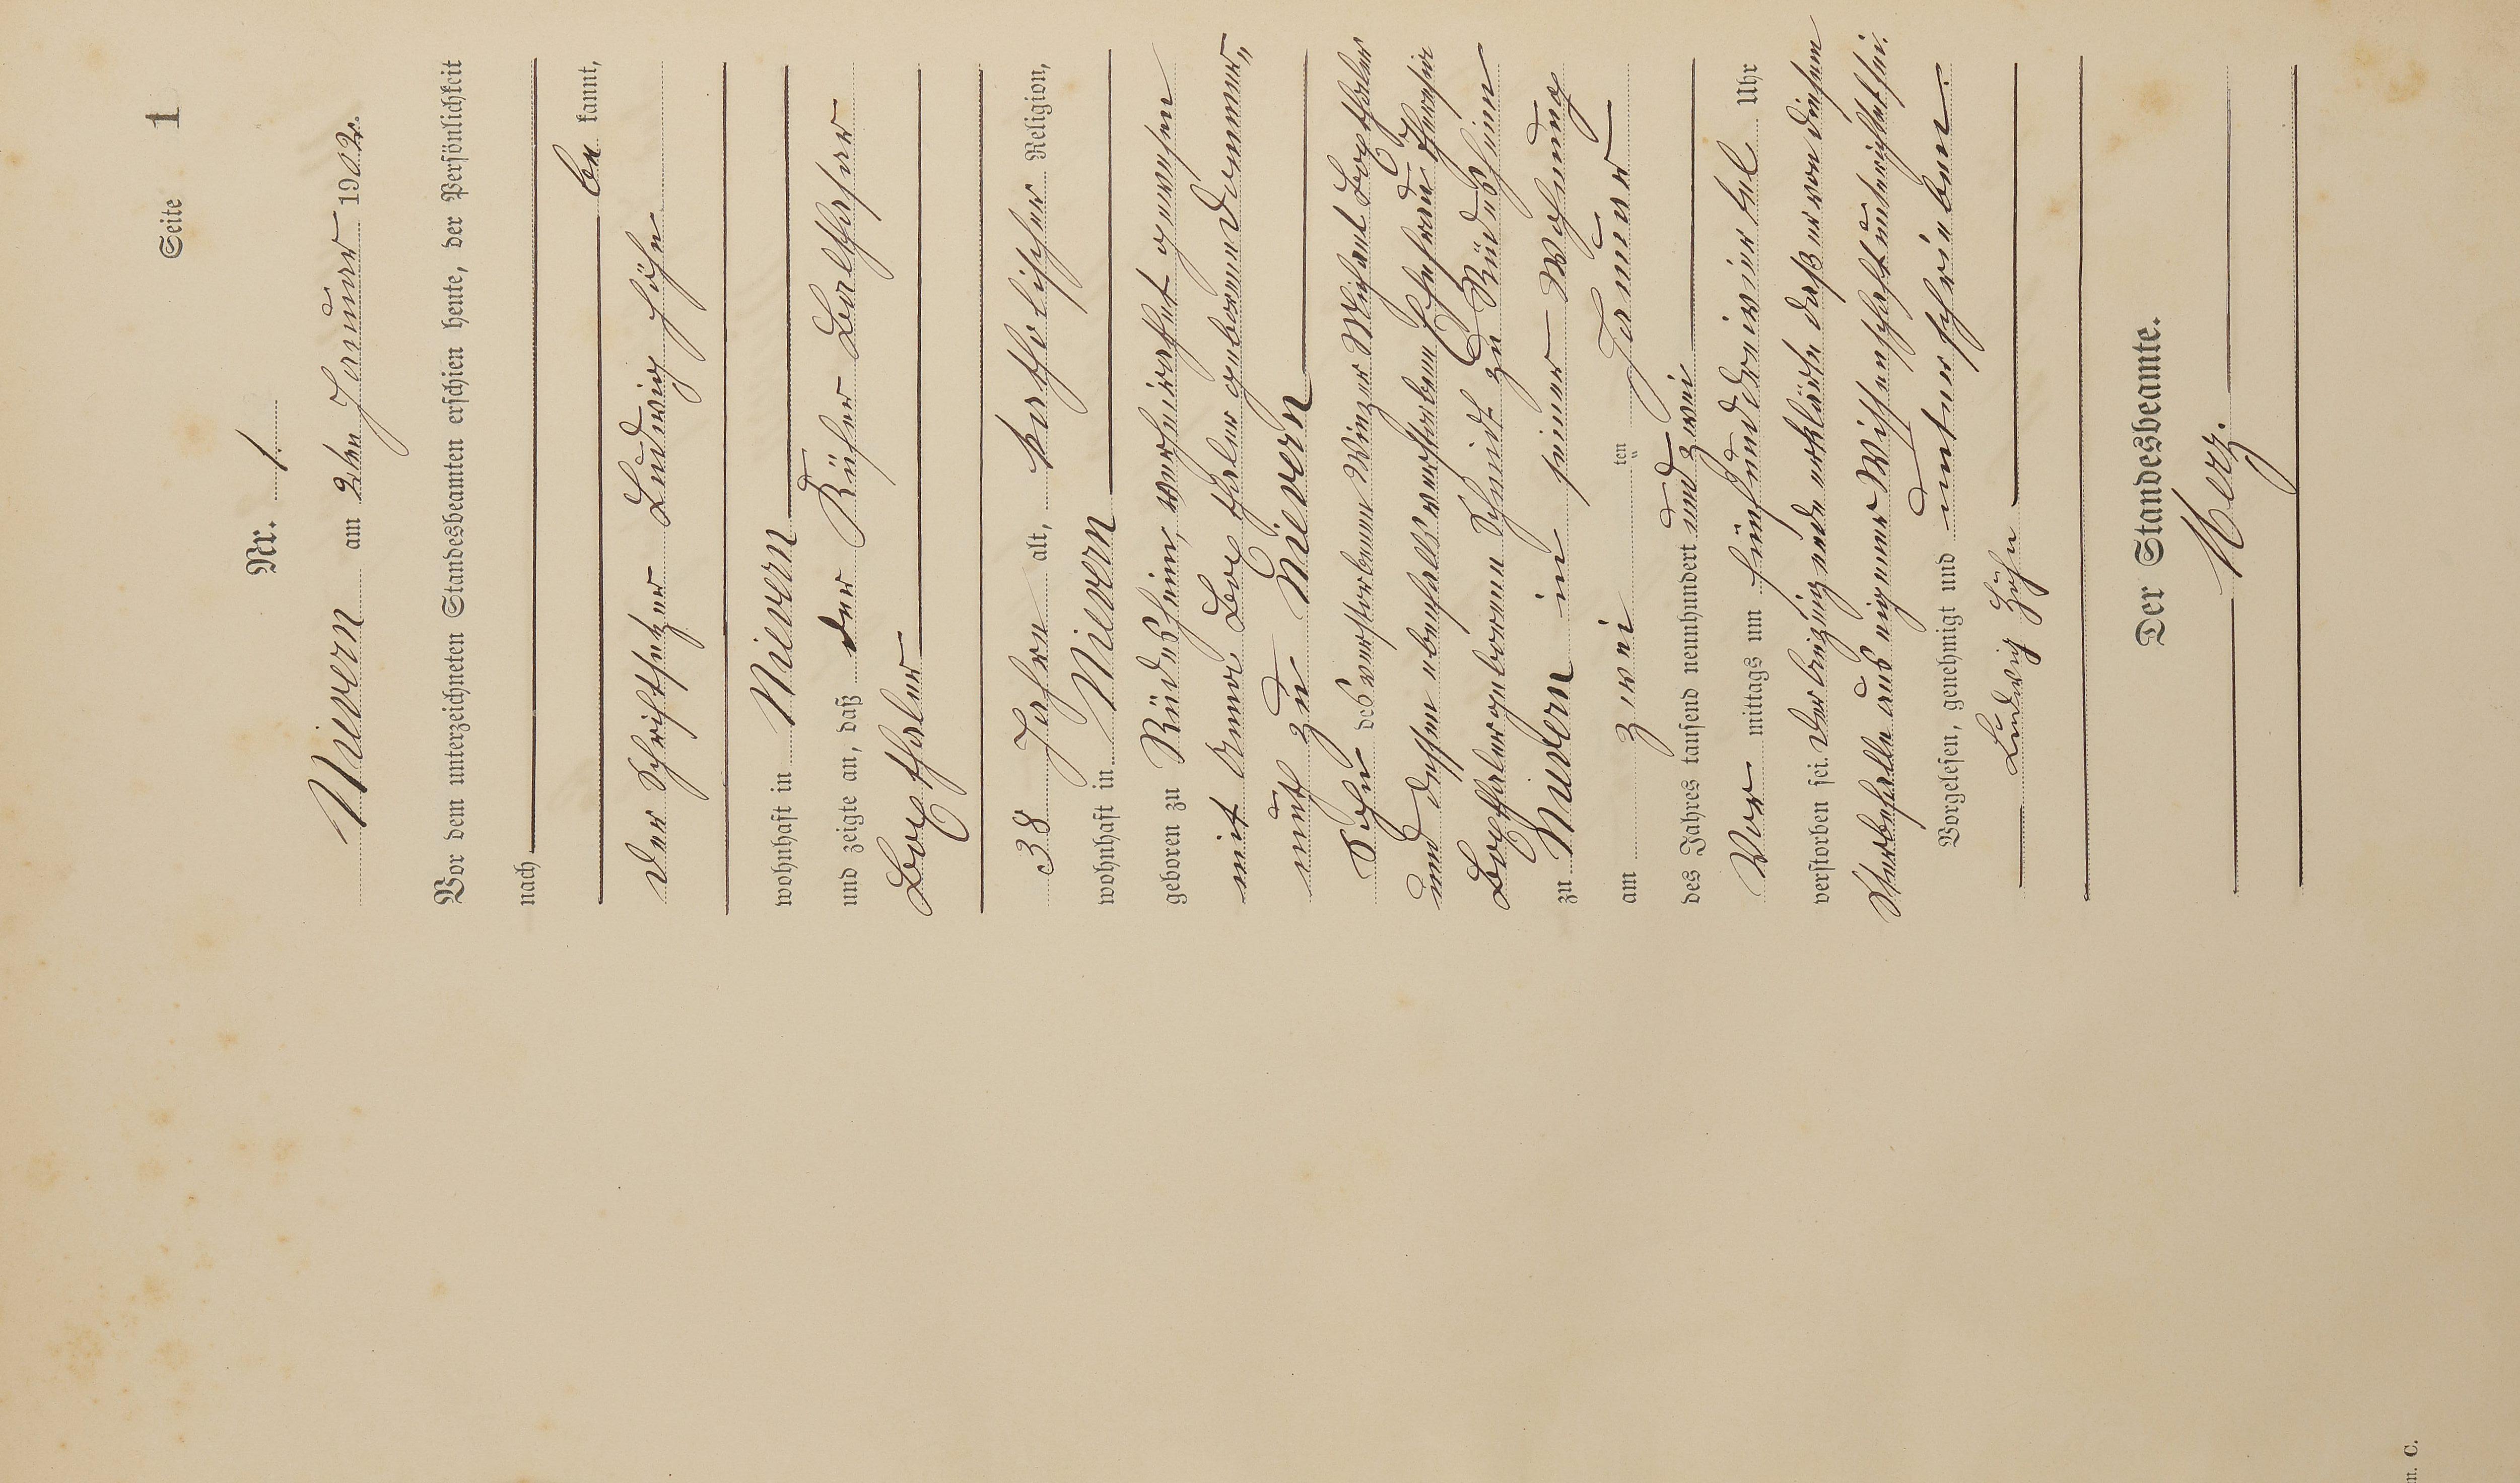 Seite 1
Nr. 1.
Nievern am 2ten Januar 1902.
Vor dem unterzeichneten Standesbeamten erschien heute, der Persönlichkeit
nach
be kannt,
der Schriftsetzer Ludwig Höhn
wohnhaft in Nievern
und zeigte an, daß der Küfer Balthasar
38 Jahre alt, katholischer Religion,
wohnhaft in Nievern
geboren zu Rüdesheim, verheirathet gewesen
mit Anna geborene
zu Nievern
Sohn des verstorbenen Winzer
und dessen ebenfalls verstorbenen Ehefrau
geborene Schmidt zu Rüdesheim
zu Nievern in seiner Wohnung
am zwei ten Januar
des Jahres tausend neunhundert und zwei
Vor mittags um fünf und dreiviertel Uhr
verstorben sei. Der Anzeigende erklärte daß er von diesem
Sterbefalle aus eigener Wissenschaft unterrichtet sei.
Vorgelesen, genehmigt und unterschrieben.
Ludwig Höhn
Der Standesbeamte.
Merz.
m. C.